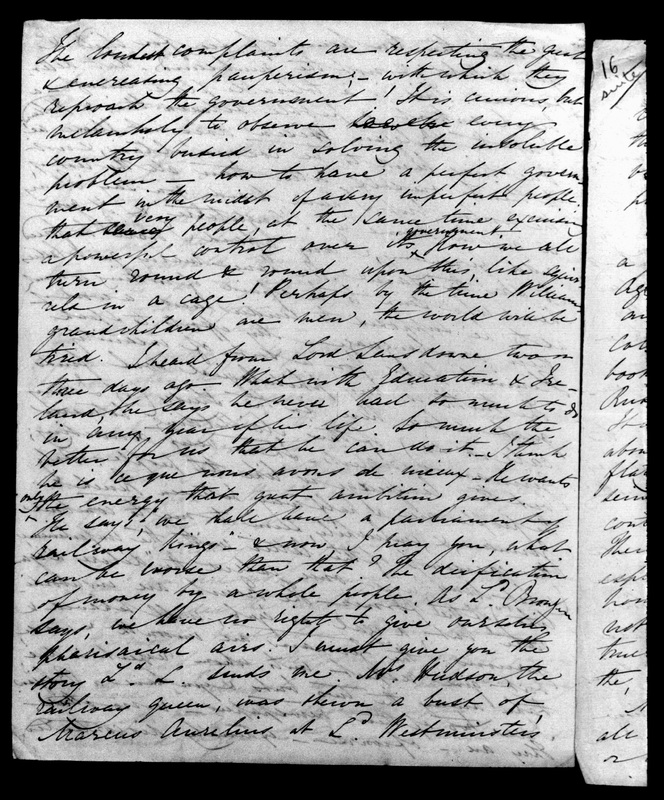 The loudest complaints are respecting the great
& encreasing pauperism; – with which they
reproach the government! It is curious, but
melancholy to observe every
country busied in solving the insoluble
problem – how to have a perfect govern-
ment in the midst of a very imperfect people,
that very people, at the same time exercising
a powerful control over its government. How we all
turn round & round upon this, like squir-
rels in a cage! Perhaps by the time William's
grandchildren are men, the world will be
tired. I heard from Lord Lansdowne two or
three days ago. What with Education & Ire-
land he says he never had so much to do
in any year of his life. So much the
better for us that he can do it – I think
he is ce que nous avons de mieux – He wants
only the energy that great ambition gives.
He says, "we shall have a parliament of
railway kings" – & now I pray you, what
can be worse than that? The deification
of money by a whole people. As Ld. Brougham
says, we have no right to give ourselves
pharisaical airs. I must give you the
story Ld. L. sends me. Mrs. Hudson, the
railway queen, was shewn a bust of
Marcus Aurelius at Ld. Westminster's
16
suite
a
all
or